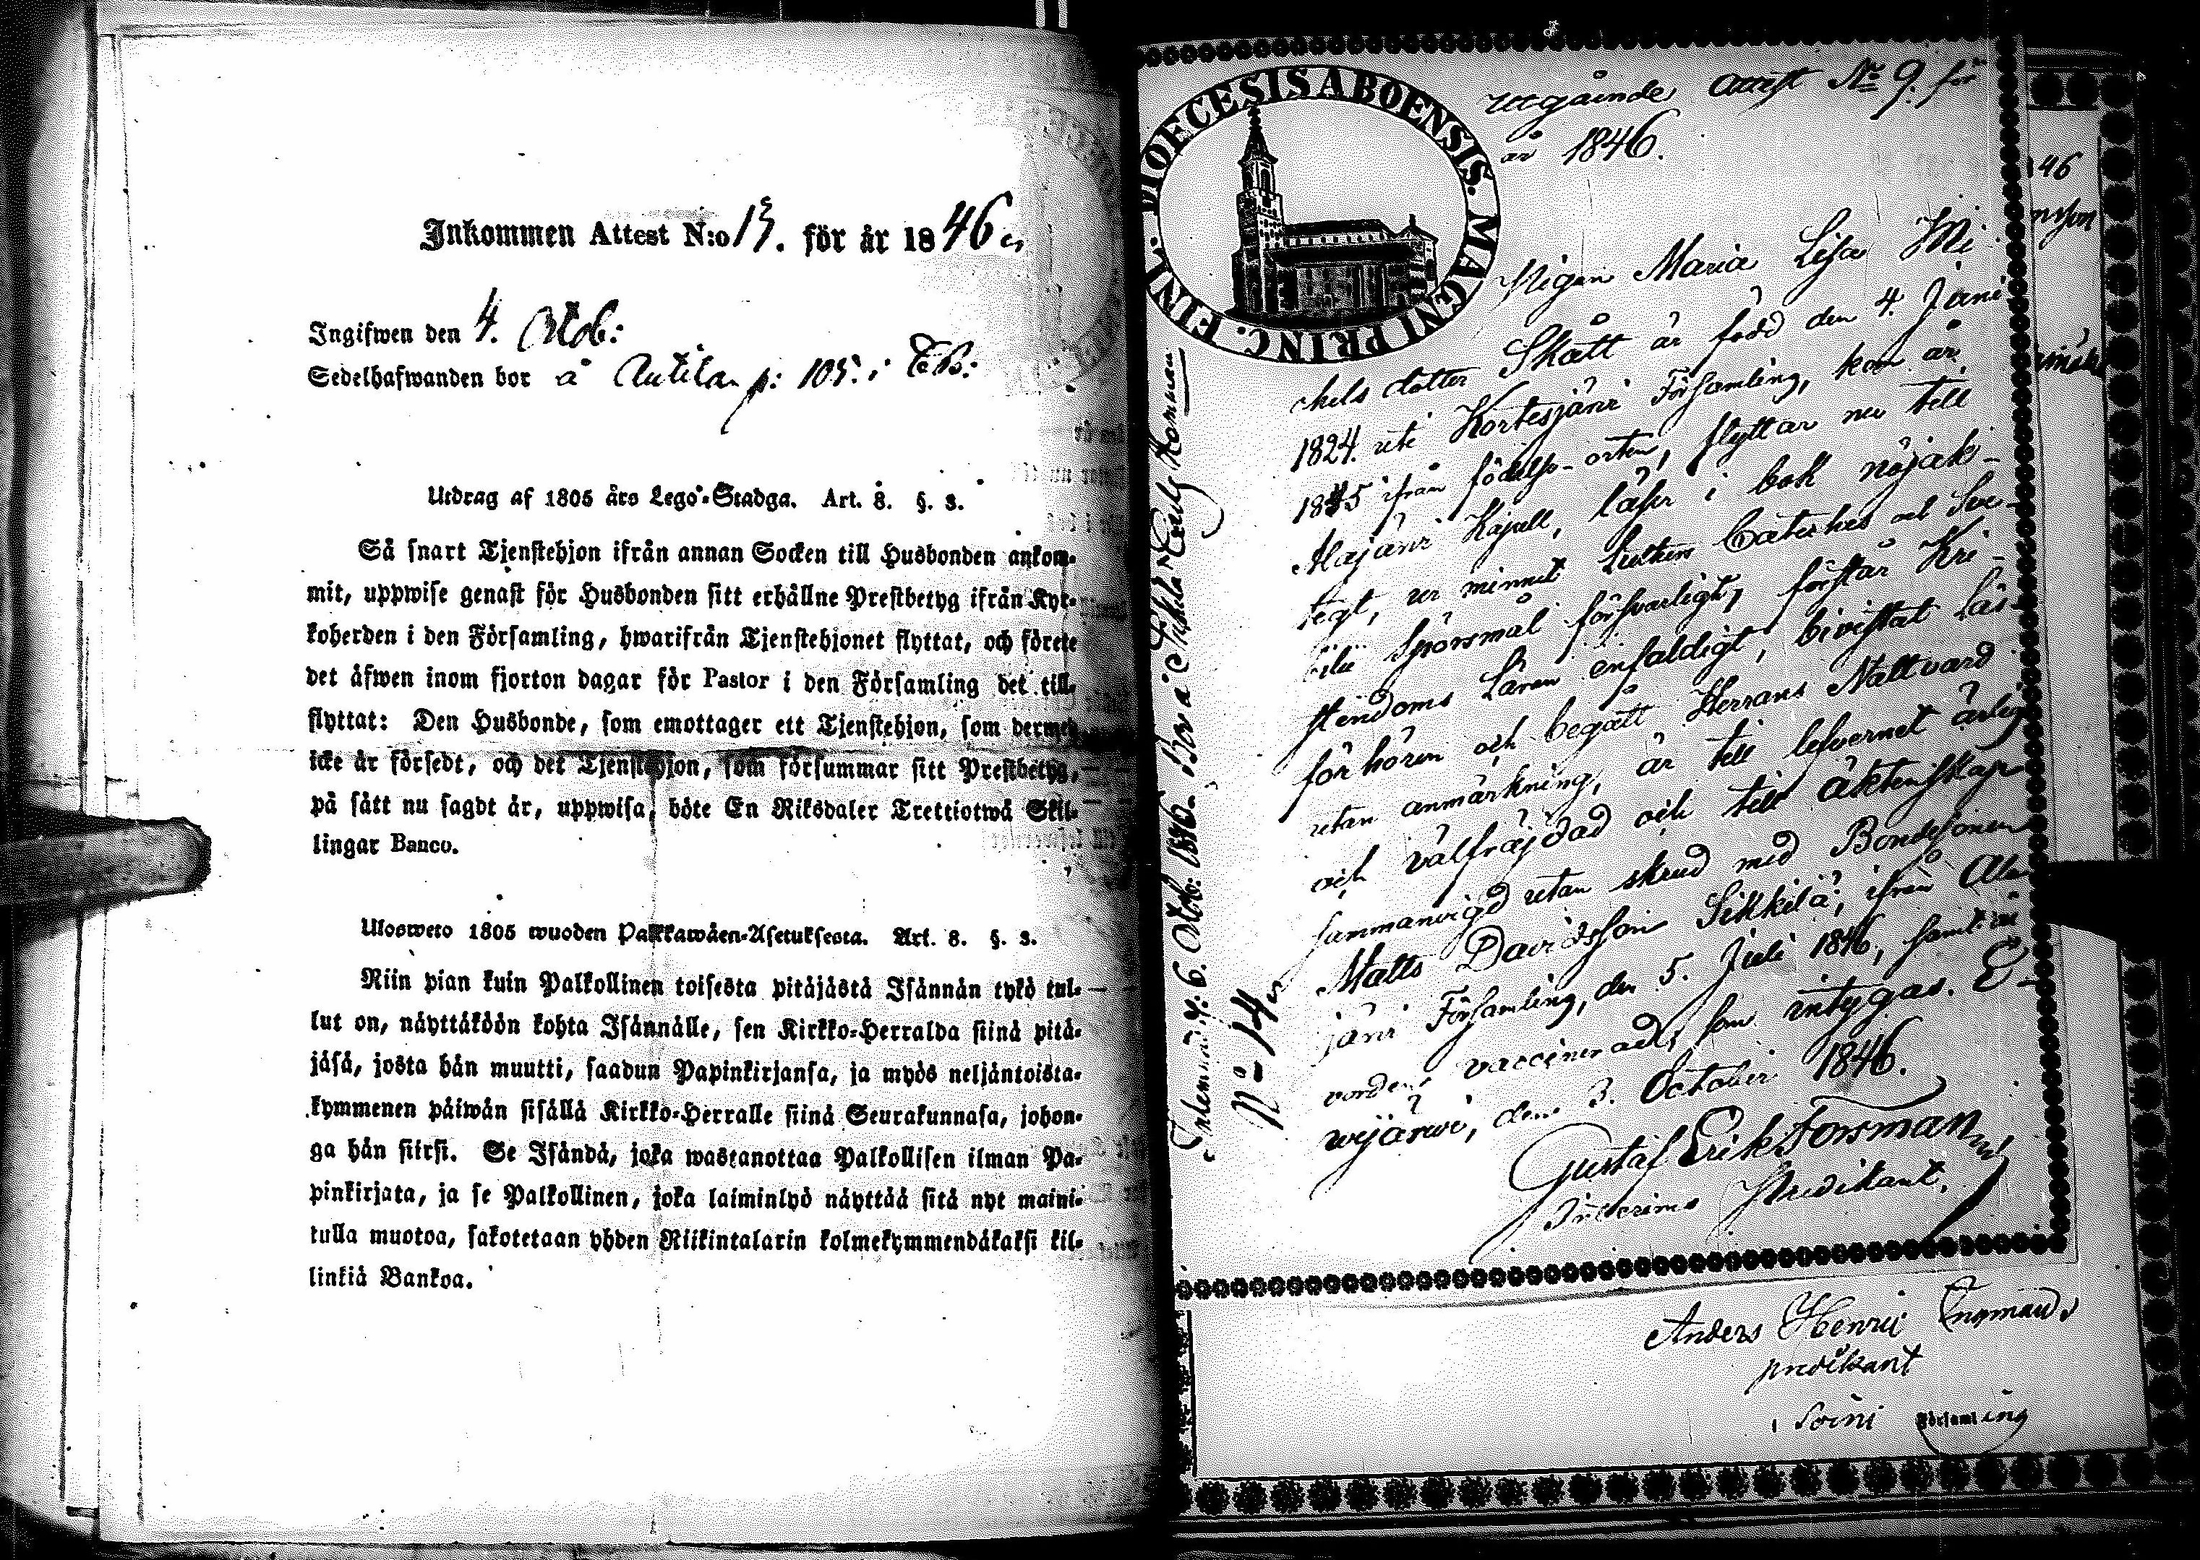 Inkommen Attest N:o 13. för år 1846
Ingifwen den 4. Octob:
Sedelhafwanden bor å Antila p: 105. i
Utdrag af 1805 års Lego-Stadga. Art. 8. §. 3.
Så snart Tjenstehjon ifrån annan Socken till Husbonden ankom-
mit, uppwise genast för Husbonden sitt erhållne Prestbetyg ifrån Kyr-
koherden i den Församling, hwarifrån Tjenstehjonet flyttat, och förete
det äfwen inom fjorton dagar för Pastor i den Församling det till-
flyttat: Den Husbonde, som emottager ett Tjenstehjon, som dermed
icke är försedt, och det Tjenstehjon, som försummar sitt Prestbetyg,
på sätt nu sagdt är, uppwisa, böte En Riksdaler Trettiotwå Skil-
lingar Banco.
Ulosweto 1805 wuoden Palkkawäen-Asetuksesta. Art. 8. §. 3.
Niin pian kuin Palkollinen toisesta pitäjästä Isännän tykö tul-
lut on, näyttäköön kohta Isännälle, sen Kirkko-Herralda siinä pitä-
jäsä, josta hän muutti, saadun Papinkirjansa, ja myös neljäntoista-
kymmenen päiwän sisällä Kirkko-Herralle siinä Seurakunnasa, johon-
ga hän siirsi. Se Isändä, joka wastanottaa Palkollisen ilman Pa-
pinkirjata, ja se Palkollinen, joka laiminlyö näyttää sitä nyt maini-
tulla muotoa, sakotetaan yhden Riikintalarin kolmekymmendäkaksi kil-
linkiä Bankoa.
DIOECESIS ABOENSIS. MAGNI PRINC. FINL.
Utgående Attest No 9. för
år 1846.
Pigan Maria Lisa Mi
chels dotter Skått är född den 4. Juni
1824. uti Kortesjärvi Församling, kom år
1845 ifrån födelse-orten, flyttar nu till
Alajärvi Kapell, läser i bok nöjak-
tigt, ur minnet Luthers Cateches och Sve-
bilii Spörsmål försvarligt, förstår Kri-
stendoms Läran enfaldigt, bivistat Läs-
förhören och begått Herrans Nattvard
utan anmärkning, är till lefvernet ärlig
och välfräjdad och till äktenskap
sammanvigd utan skrud med Bondesonen
Matts Davidsson Sikkilä, ifrån Ala-
järvi Församling, den 5. Juli 1846, samt är
vorden vaccinerad, som intygas. E-
vijärvi, den 3. October 1846.
Gustaf Erik Forsman
Interims Predikant.
6. Octob: 1846. Bor å Sikkilä
No 14
46
Anders Henric Engmans
predikant
i Soini Församling